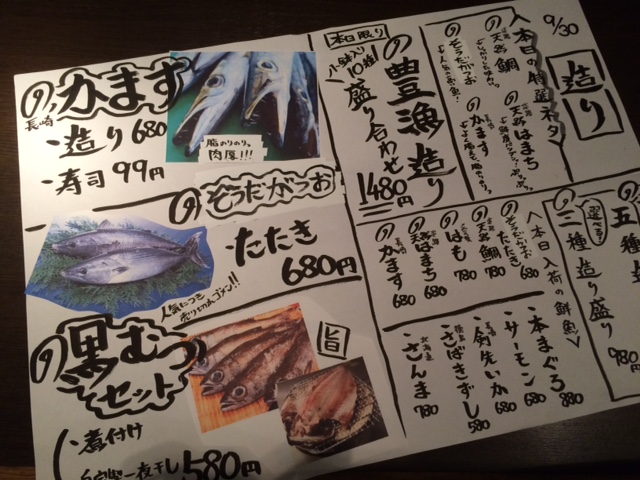 9/30
造り
<本日の特選ネタ>
の 天然鯛
の 天然はまち
の そうだがつお
の かます
本日限り
の 豊漁造り
10種盛り合わせ
1480円
五種
選べる
三種造り盛り
980円
<本日入荷の鮮魚>
の そうだがつおたたき 680
の 天然鯛 780
の はも 780
の 天然はまち 680
の 長崎 かます 680
本まぐろ 880
サーモン 680
剣先いか 680
さばきずし 580
北海道 さんま 780
の かます
長崎
・造り 680
・寿司 99円
脂のりのり。
肉厚!!!
の そうだがつお
・たたき
680円
人気につき
売り切れゴメン!!
の 黒むつ
セット
旨
・煮付け
自家製一夜干し 580円